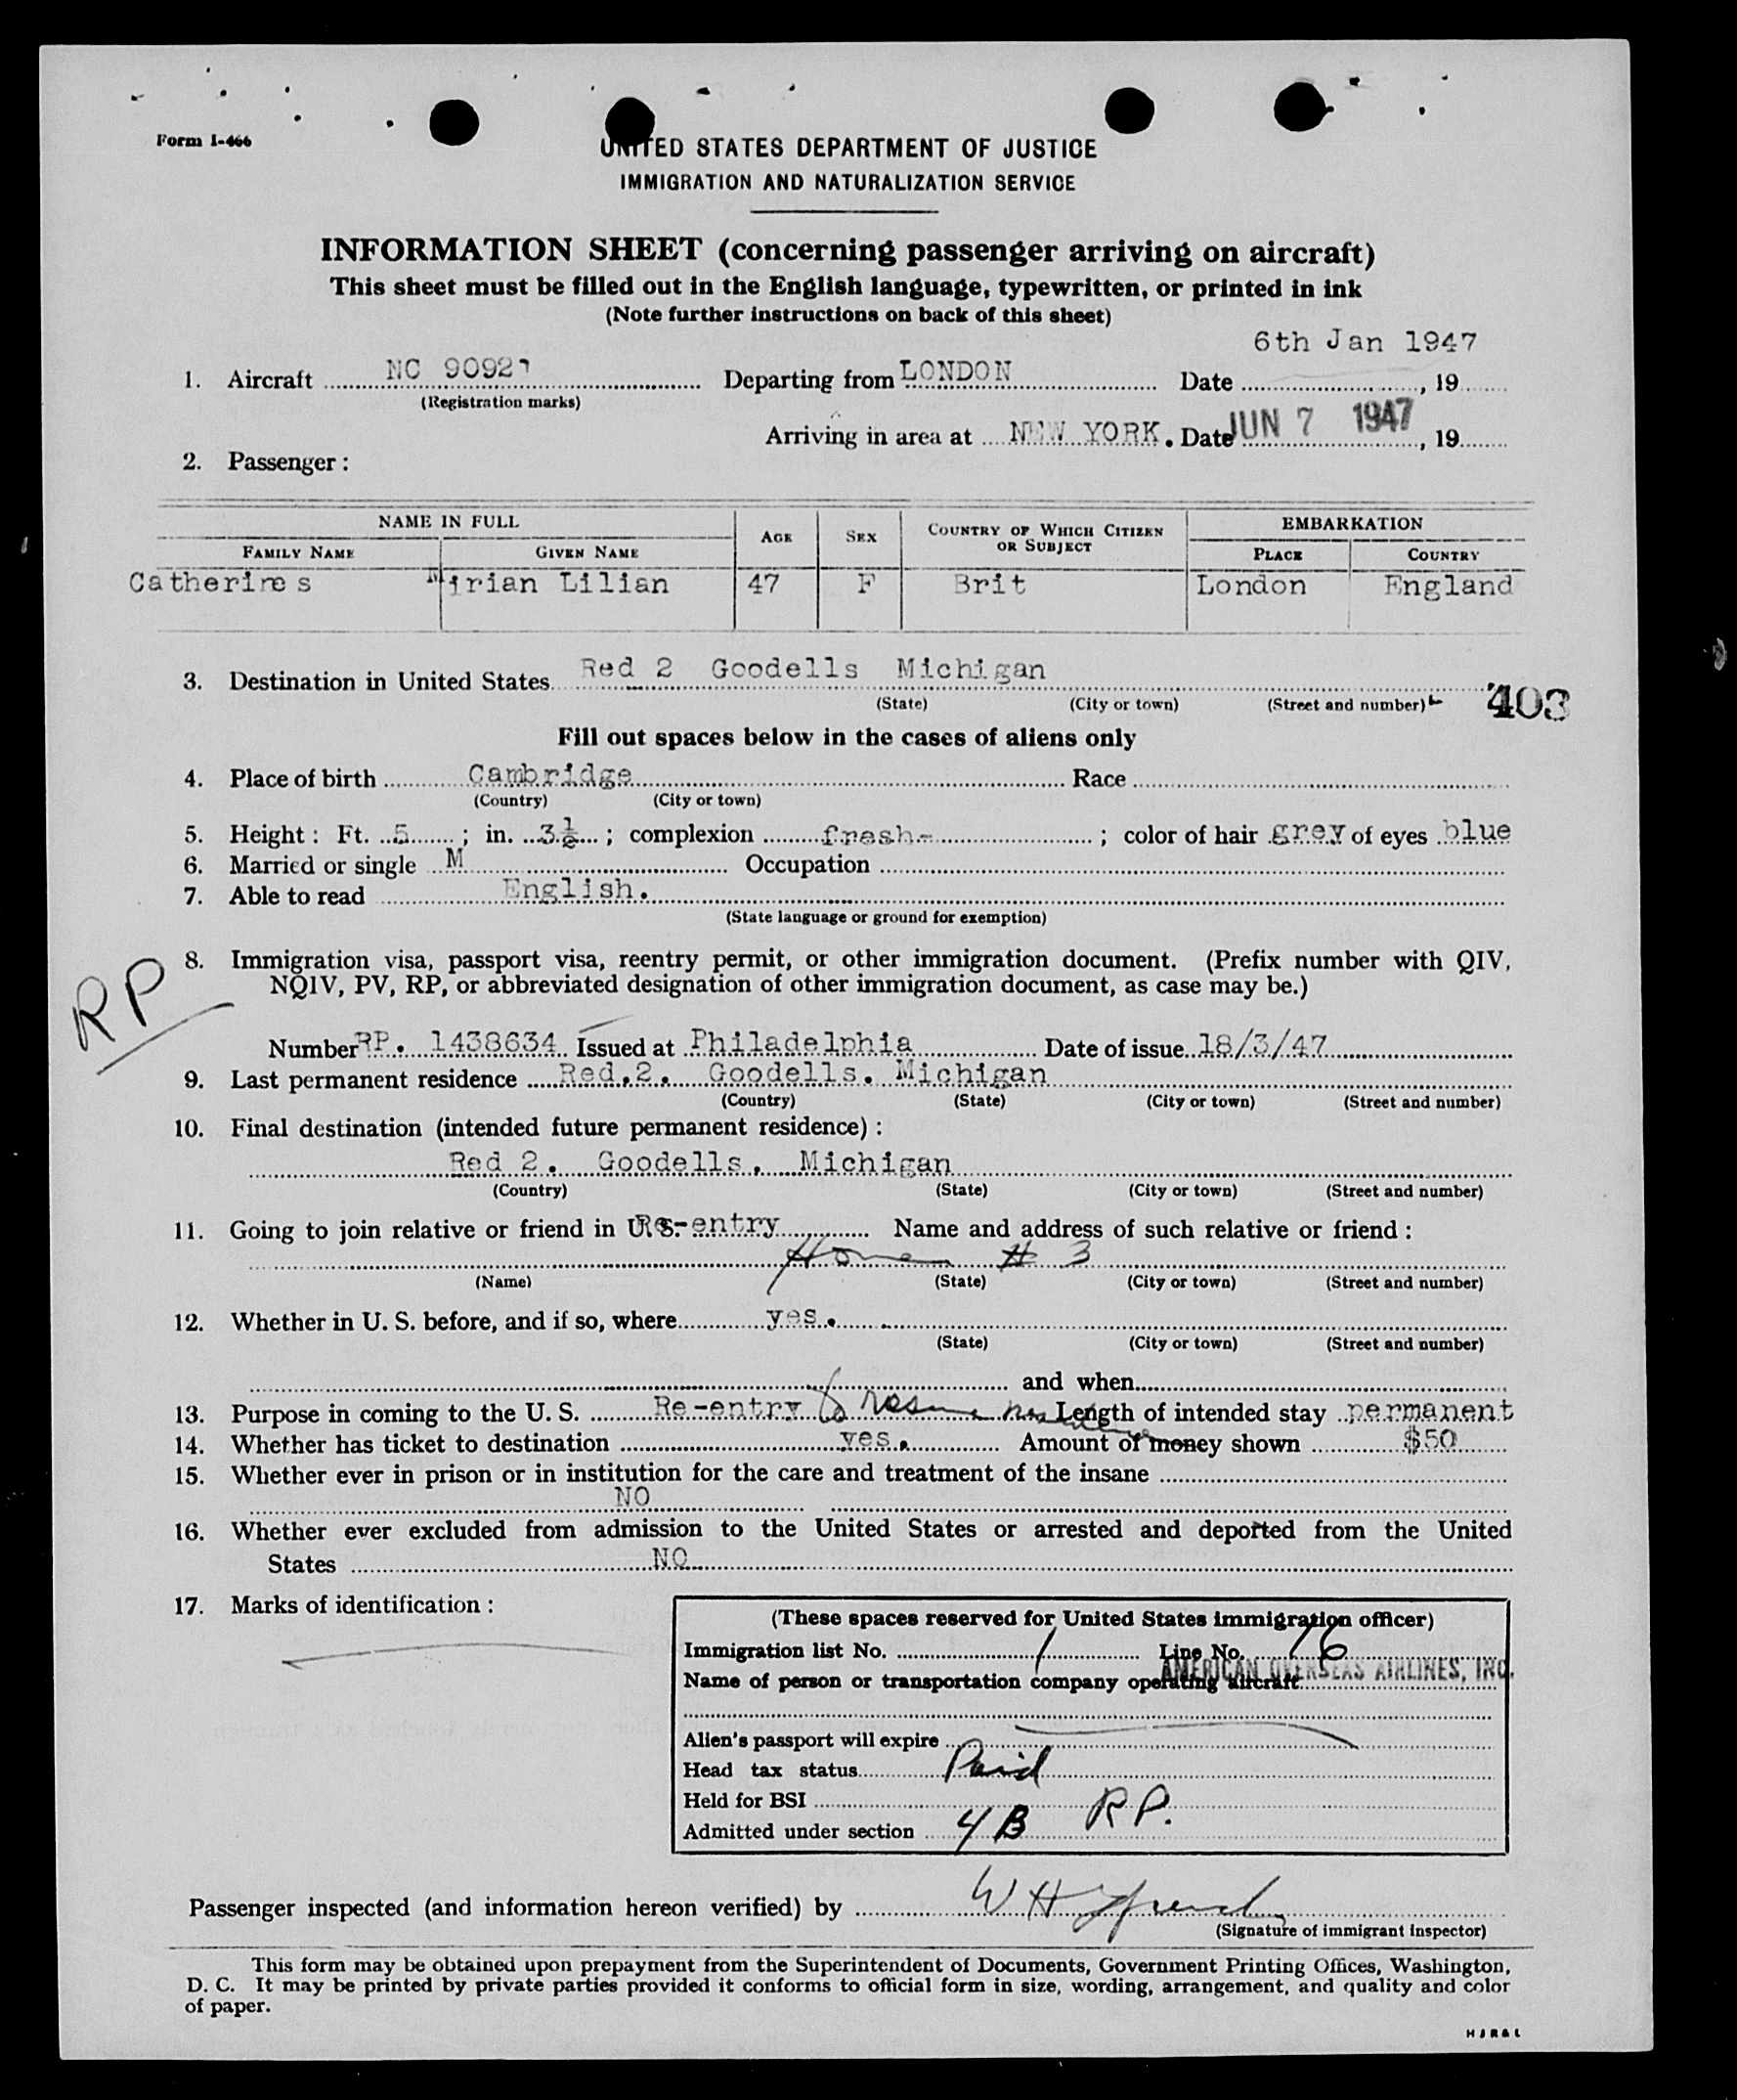 Form I-466
UNITED STATES DEPARTMENT OF JUSTICE
IMMIGRATION AND NATURALIZATION SERVICE
INFORMATION SHEET (concerning passenger arriving on aircraft)
This sheet must be filled out in the English language, typewritten, or printed in ink
(Note further instructions on back of this sheet)
6th Jan 1947
1. Aircraft NC 90927 Departing from LONDON Date , 19
(Registration marks)
Arriving in area at NEW YORK. Date JUN 7 1947, 19
2. Passenger :
NAME IN FULL AGE SEX COUNTRY OF WHICH CITIZEN OR SUBJECT EMBARKATION
FAMILY NAME GIVEN NAME PLACE COUNTRY
Catherines Mirian Lilian 47 F Brit London England
3. Destination in United States Red 2 Goodells Michigan
(State) (City or town) (Street and number) 403
Fill out spaces below in the cases of aliens only
4. Place of birth Cambridge Race
(Country) (City or town)
5. Height : Ft. 5 ; in. 3½ ; complexion fresh- ; color of hair grey of eyes blue
6. Married or single M Occupation
7. Able to read English.
(State language or ground for exemption)
RP
8. Immigration visa, passport visa, reentry permit, or other immigration document. (Prefix number with QIV,
NQIV, PV, RP, or abbreviated designation of other immigration document, as case may be.)
Number RP. 1438634 Issued at Philadelphia Date of issue 18/3/47
9. Last permanent residence Red.2. Goodells. Michigan
(Country) (State) (City or town) (Street and number)
10. Final destination (intended future permanent residence) :
Red 2. Goodells. Michigan
(Country) (State) (City or town) (Street and number)
11. Going to join relative or friend in U. S. Re-entry Name and address of such relative or friend :
Home # 3
(Name) (State) (City or town) (Street and number)
12. Whether in U. S. before, and if so, where yes.
(State) (City or town) (Street and number)
and when
13. Purpose in coming to the U. S. Re-entry to resume residence Length of intended stay permanent
14. Whether has ticket to destination yes. Amount of money shown $50
15. Whether ever in prison or in institution for the care and treatment of the insane
NO
16. Whether ever excluded from admission to the United States or arrested and deported from the United
States NO
17. Marks of identification :
(These spaces reserved for United States immigration officer)
Immigration list No. 1 Line No. 16
Name of person or transportation company operating aircraft AMERICAN OVERSEAS AIRLINES, INC.
Alien's passport will expire
Head tax status Paid
Held for BSI
Admitted under section 4 B RP.
Passenger inspected (and information hereon verified) by W H
(Signature of immigrant inspector)
This form may be obtained upon prepayment from the Superintendent of Documents, Government Printing Offices, Washington,
D. C. It may be printed by private parties provided it conforms to official form in size, wording, arrangement, and quality and color
of paper.
H J R & L